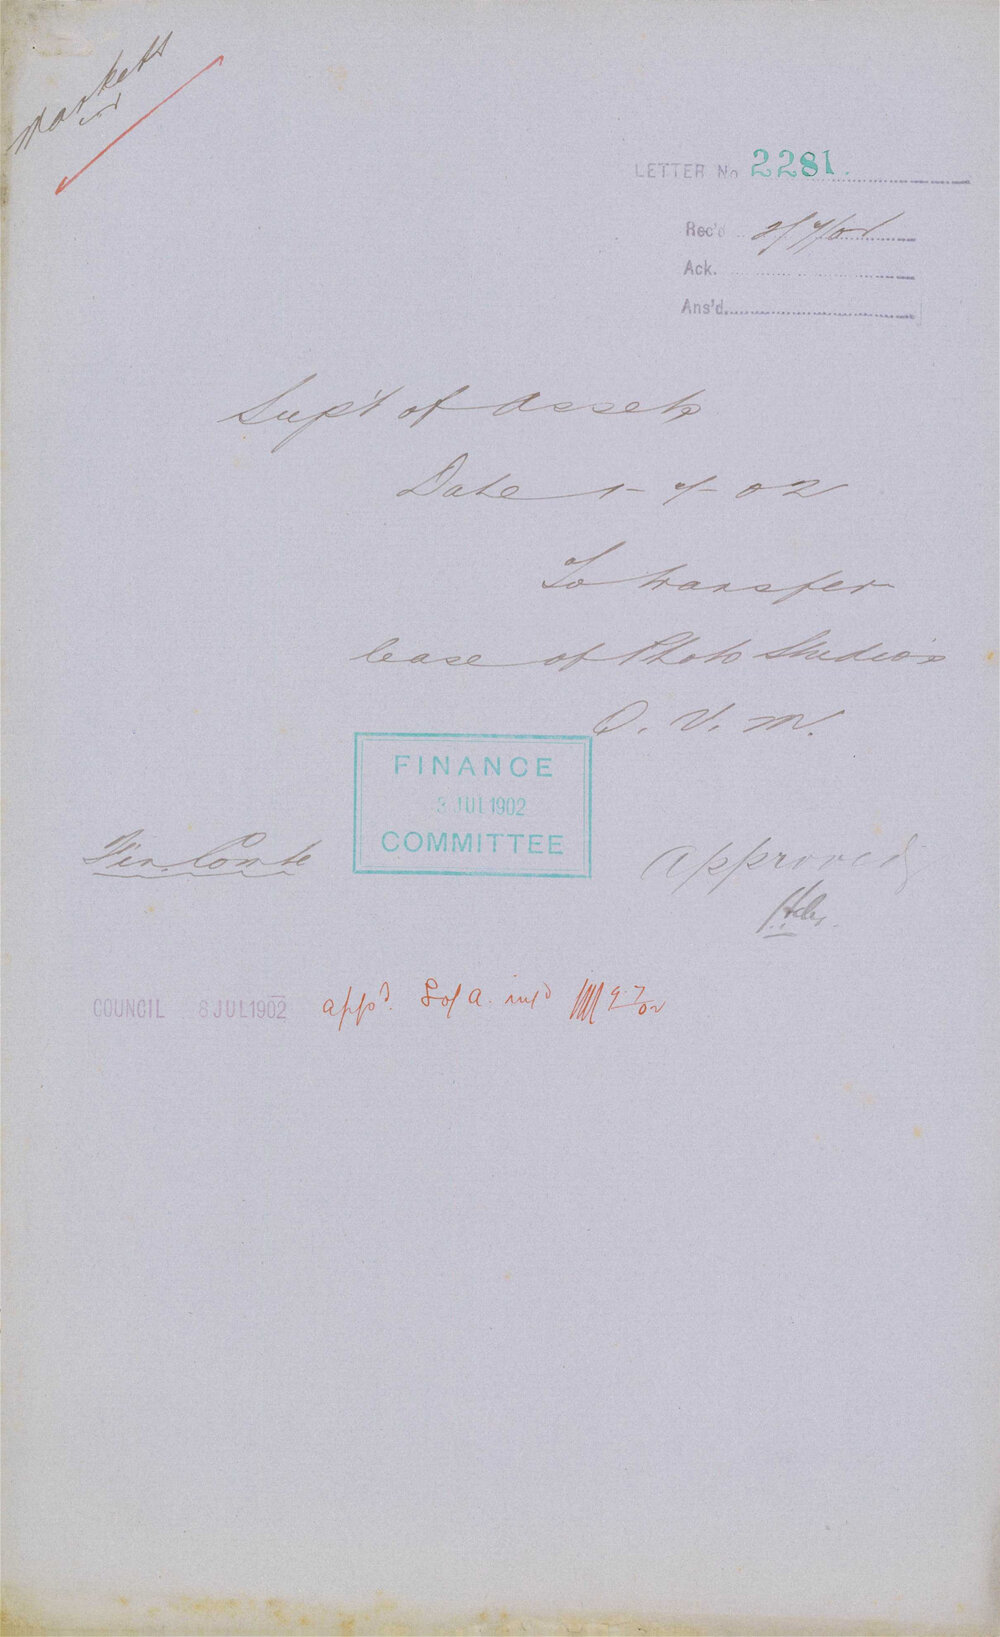 Markets
LETTER No 2281.
Rec'd 2/7/02
Ack.
Ans'd
Sup't of Assets
Date 1-7-02
To transfer
lease of Photo Studio's
Q. V. M.
FINANCE
3 JUL 1902
COMMITTEE
Fin. Comte
Approved
COUNCIL 8 JUL 1902 app'd. S of A. inf'd 9.7/02